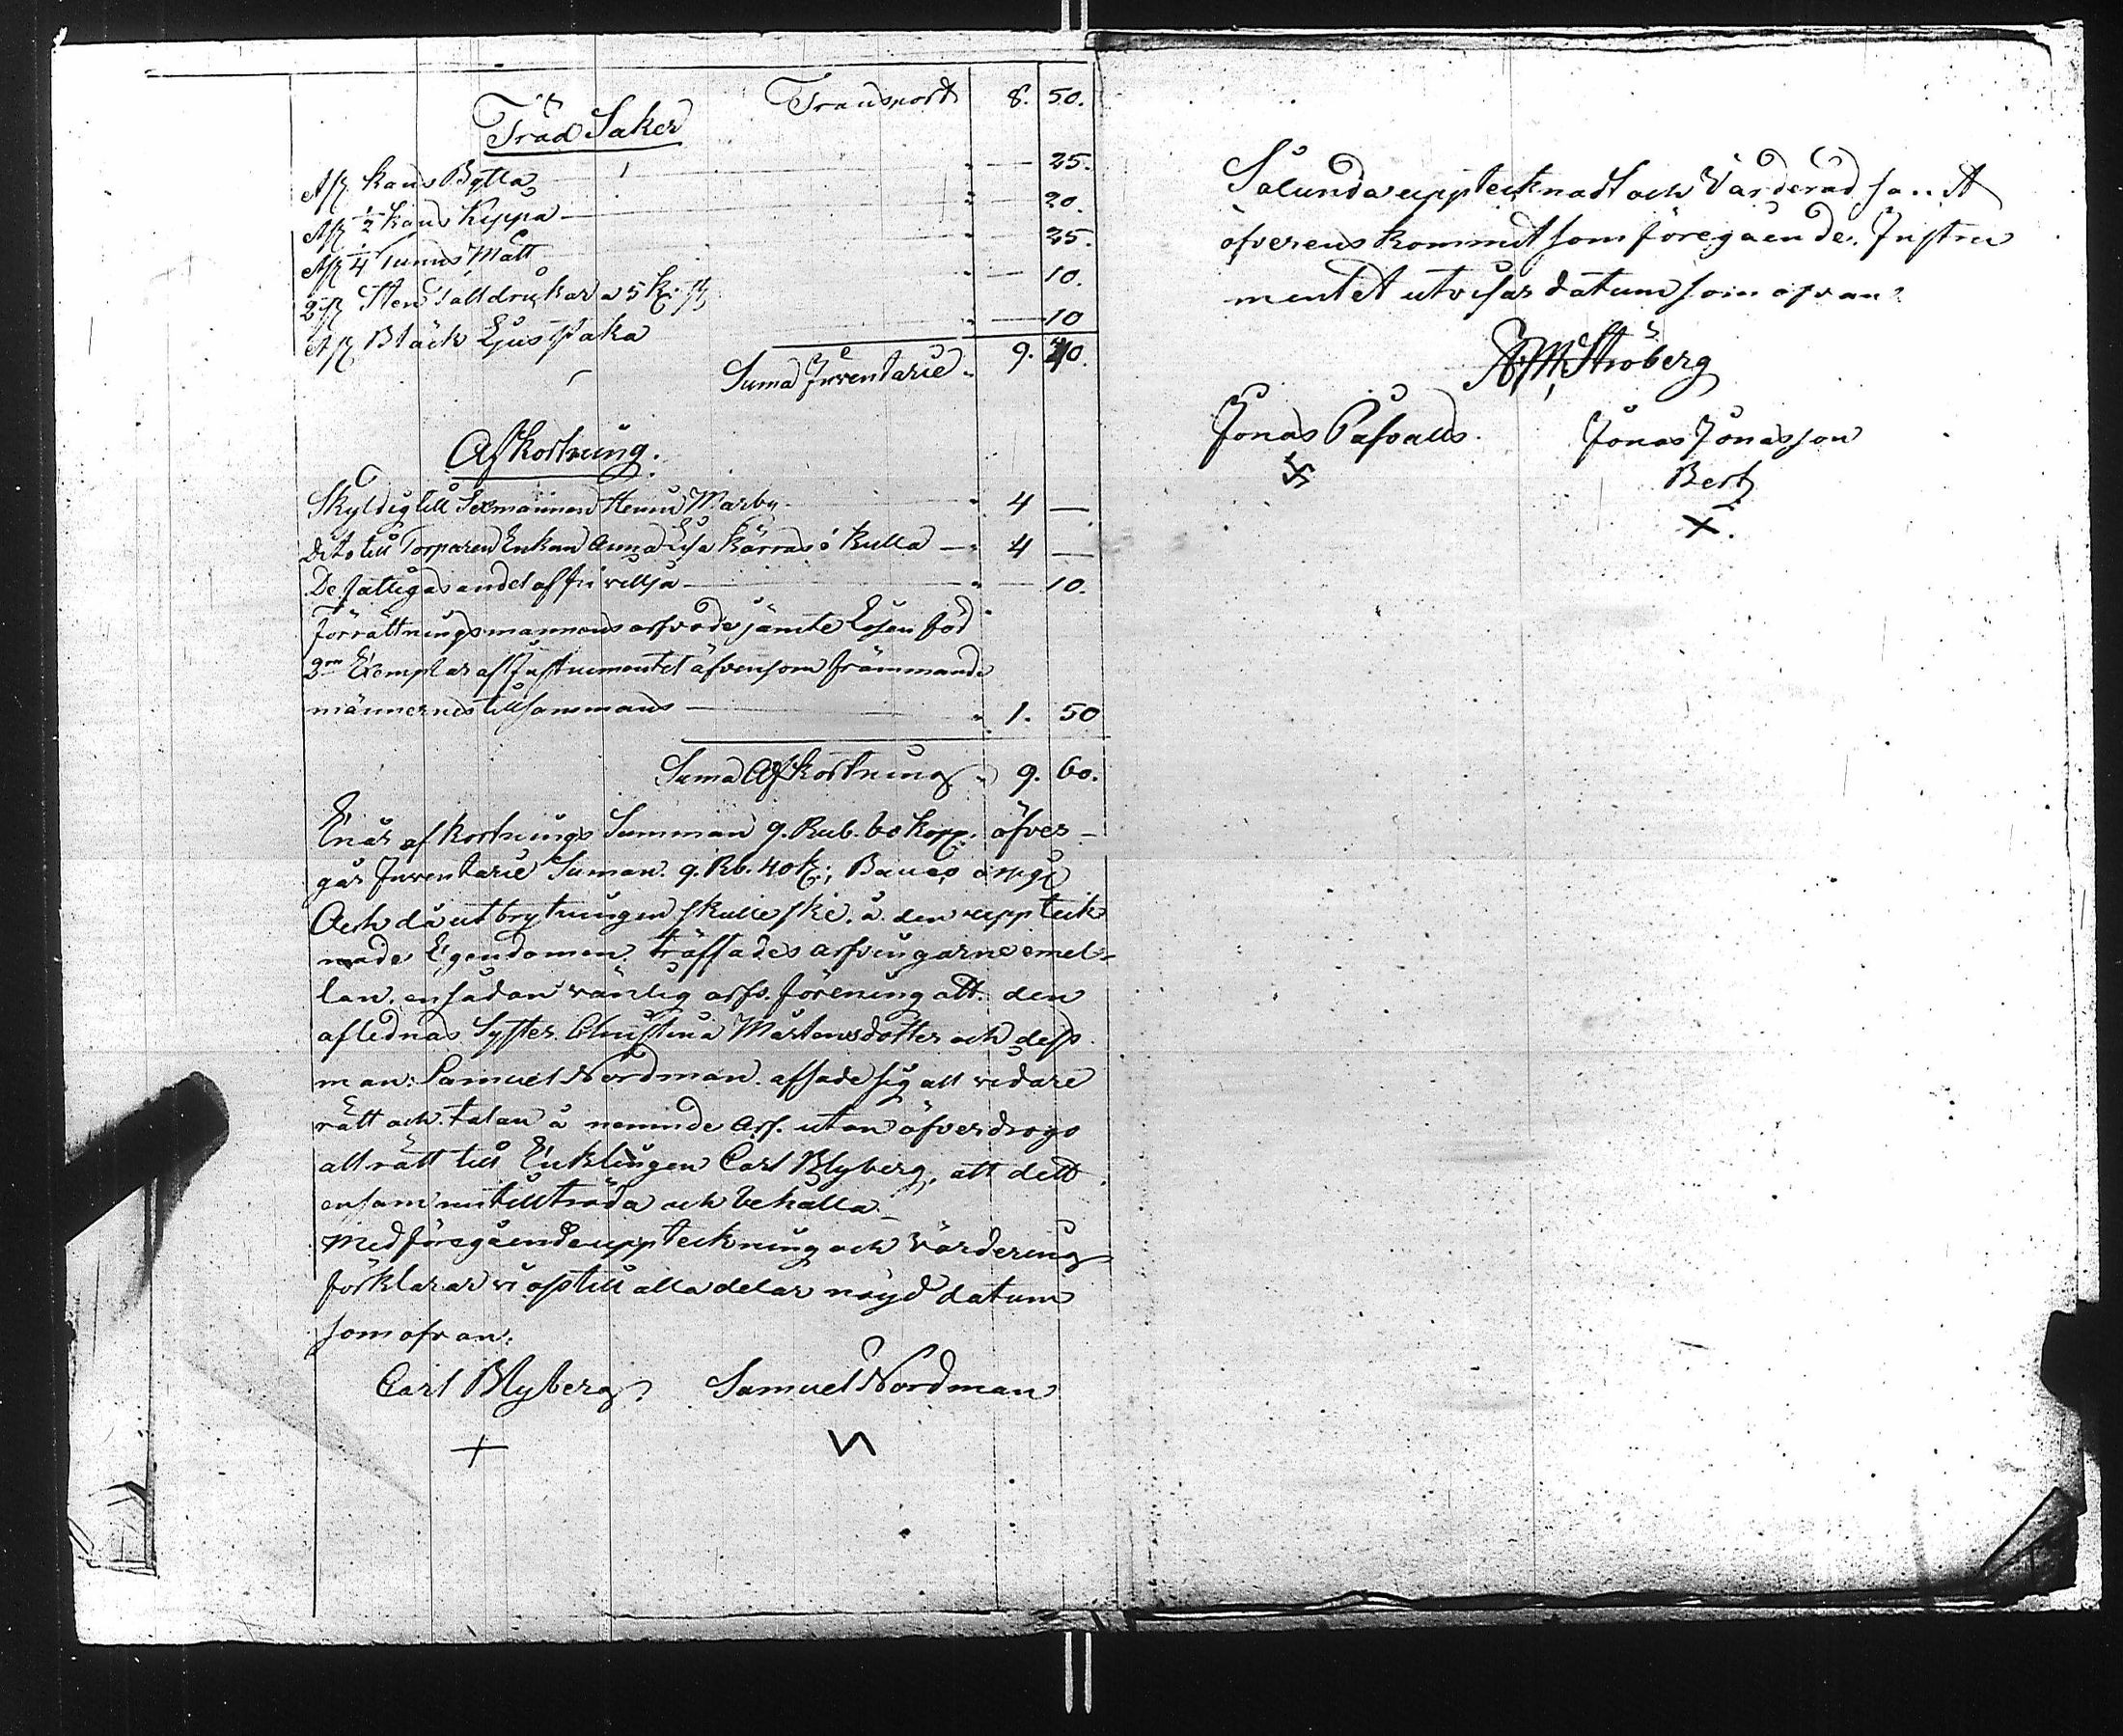 Transport 8. 50.
Träd Saker
1 st. kans Bytta " — 25.
1 st. 1/2 kans Kippa " — 20.
1 st. 1/4 Tunns Mått " — 25.
2 st Sten Talldrickar a 5 k: st " — 10.
1 st Bläck Ljusstaka " — 10
Suma Inventarie " 9. 40.
Afkortning.
Skyldig till Sexmannen Henric Marby " 4 —
Dito till Torparen Enkan Anna Lisa Kärras å Kulla " 4 —
De fattigas andel af fri vellja " — 10.
Förrättningsmannens arfvode jämte Lösen föd
2ne Exemplar af Instrumentet äfvensom främmande
männernes tillsammans " 1. 50
Suma Afkortning " 9. 60.
Enär afkortnings Summan 9. Rub. 60 kop: öfver-
går Inventarie Suman 9. Rb. 40 k:
Och då utbrytningen skulle ske å den uppteck
nade Egendomen träffades arfvingarne emel-
lan en sådan vänlig arfs förening att den
aflednas Syster Christina Mårtensdotter och dess
man: Samuel Nordman afsade sig all vidare
rätt och talan å nemnde Arf. utan öfverdrogo
all rätt till Enklingen Carl Blyberg, att dett
ensam tillträda och behålla
Med föregående uppteckning och Värdering
förklarar vi oss till alla delar nöjd datum
som ofvan:
Carl Blyberg Samuel Nordman
Sålunda upptecknadt och Värderad samt
öfverens kommit som föregående Instru
mentet utvisar datum som ofvan
Ströberg
Jonas Påfvalls. Jonas Jonasson
Bert